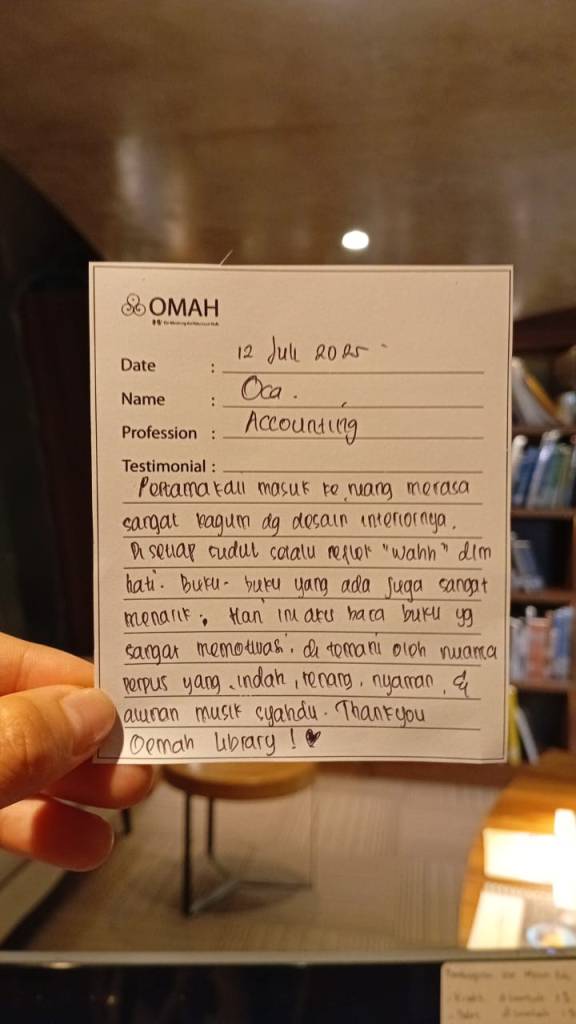 OMAH
Date : 12 Juli 2025
Name : Oca.
Profession : Accounting
Testimonial :
Pertama kali masuk ke ruang merasa
sangat kagum dg desain interiornya.
Di setiap sudut selalu reflek "wahh" dlm
hati. Buku-buku yang ada juga sangat
menarik. Hari ini aku baca buku yg
sangat memotivasi. di temani oleh nuansa
perpus yang indah, tenang, nyaman, &
alunan musik syahdu. Thankyou
Oemah Library! ♥